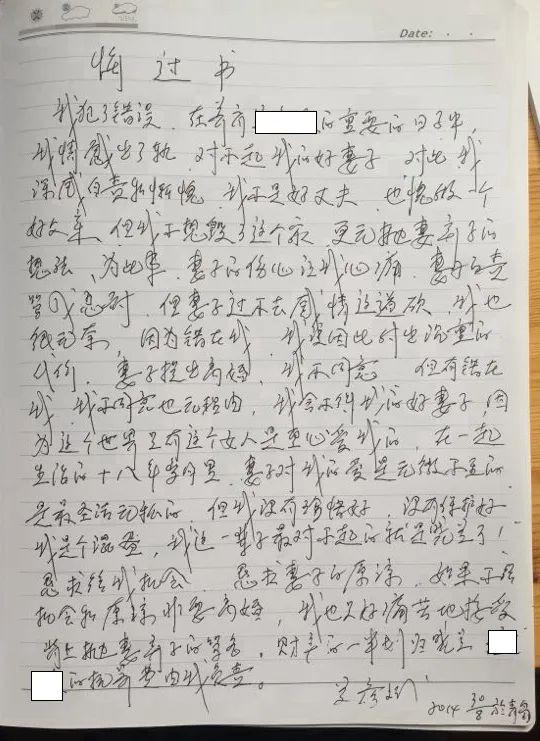 Date: · ·
悔过书
我犯了错误．在养育 的重要的日子中，
我情感出了轨．对不起我的好妻子．对此，我
深感自责和惭愧．我不是好丈夫．也愧做一个
好父亲．但我不想毁了这个家．更无抛妻弃子的
想法．为此事．妻子的伤心让我心痛．妻子的责
罚我忍耐．但妻子过不去感情这道砍．我也
很无奈，因为错在我．我因此付出沉重的
代价．妻子提出离婚，我不同意．但有错在
我．我不同意也无理由，我舍不得我的好妻子，因
为这个世界只有这个女人是真心爱我的．在一起
生活的十八年岁月里．妻子对我的爱是无微不至的
是最圣洁无私的．但我没有珍惜好．没有保护好
我是个混蛋，我这一辈子最对不起的就是 了！
恳求给我机会．恳求妻子的原谅．如果不给
机会和原谅非要离婚，我也只好痛苦地接受
背上抛妻弃子的罪名．财产的一半划归
的抚养费由我负责。
2014 30/8 於青岛